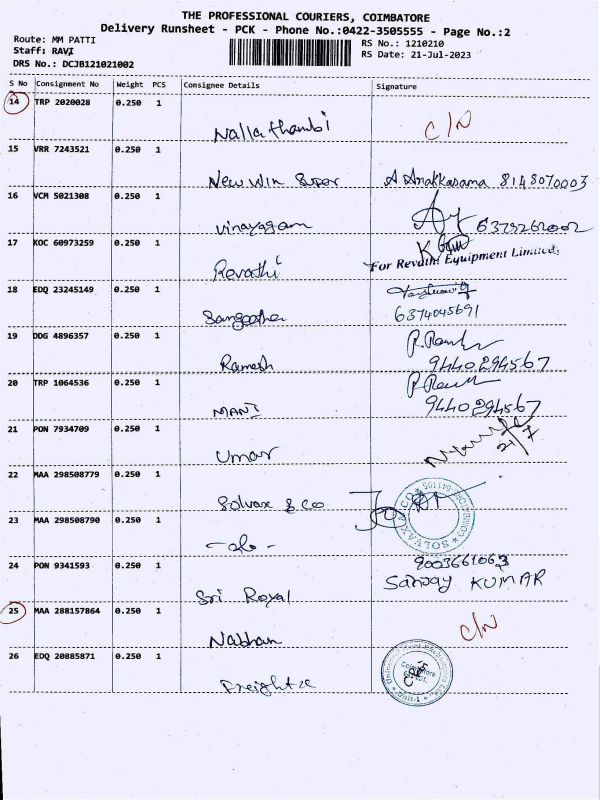 THE PROFESSIONAL COURIERS, COIMBATORE
Delivery Runsheet - PCK - Phone No.:0422-3505555 - Page No.:2
Route: MM PATTI
Staff: RAVI
DRS No.: DCJB121021002
RS No.: 1210210
RS Date: 21-Jul-2023
S No Consignment No Weight PCS Consignee Details Signature
14 TRP 2020028 0.250 1
Nallathambi C/N
15 VRR 7243521 0.250 1
New Win Super A Anakkasama 8148070003
16 VCM 5021308 0.250 1
Vinayagam 6379262002
17 KOC 60973259 0.250 1
Revathi For Revathi Equipment Limited.
18 EDQ 23245149 0.250 1
Sangeetha 6374045691
19 DDG 4896357 0.250 1
Ramesh 9440294567
20 TRP 1064536 0.250 1
MANI 9440294567
21 PON 7934709 0.250 1
Umar 21/7
22 MAA 298508779 0.250 1
Solvax & Co
23 MAA 298508790 0.250 1
- do -
24 PON 9341593 0.250 1 9003661063
Sri Royal Sanjay KUMAR
25 MAA 288157864 0.250 1
Nabhan C/N
26 EDQ 20885871 0.250 1